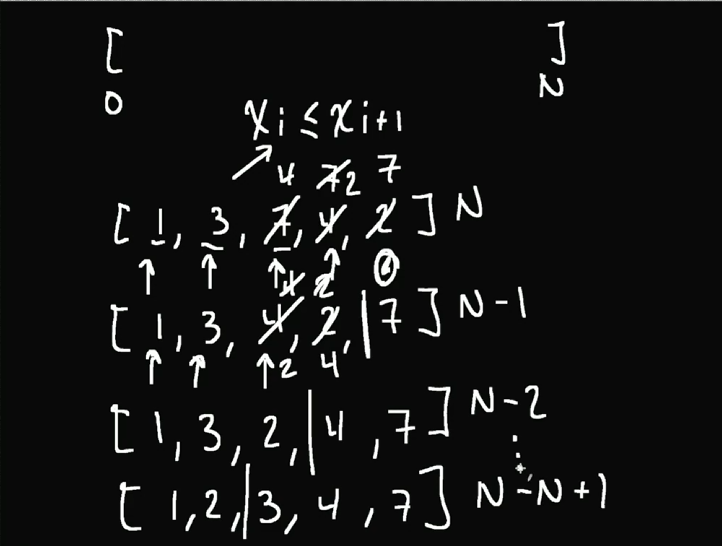 [ ]
0 N
xi ≤ xi+1
4 7 2 7
[ 1, 3, 7, 4, 2 ] N
4 2
[ 1, 3, 4, 2, | 7 ] N-1
2 4
[ 1, 3, 2, | 4, 7 ] N-2
[ 1, 2, | 3, 4, 7 ] N-N+1